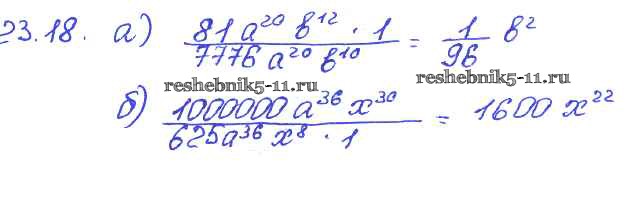 23.18. а) 81 a²⁰ b¹² · 1 / 7776 a²⁰ b¹⁰ = 1/96 b²
reshebnik5-11.ru reshebnik5-11.ru
б) 1000000 a³⁶ x³⁰ / 625 a³⁶ x⁸ · 1 = 1600 x²²